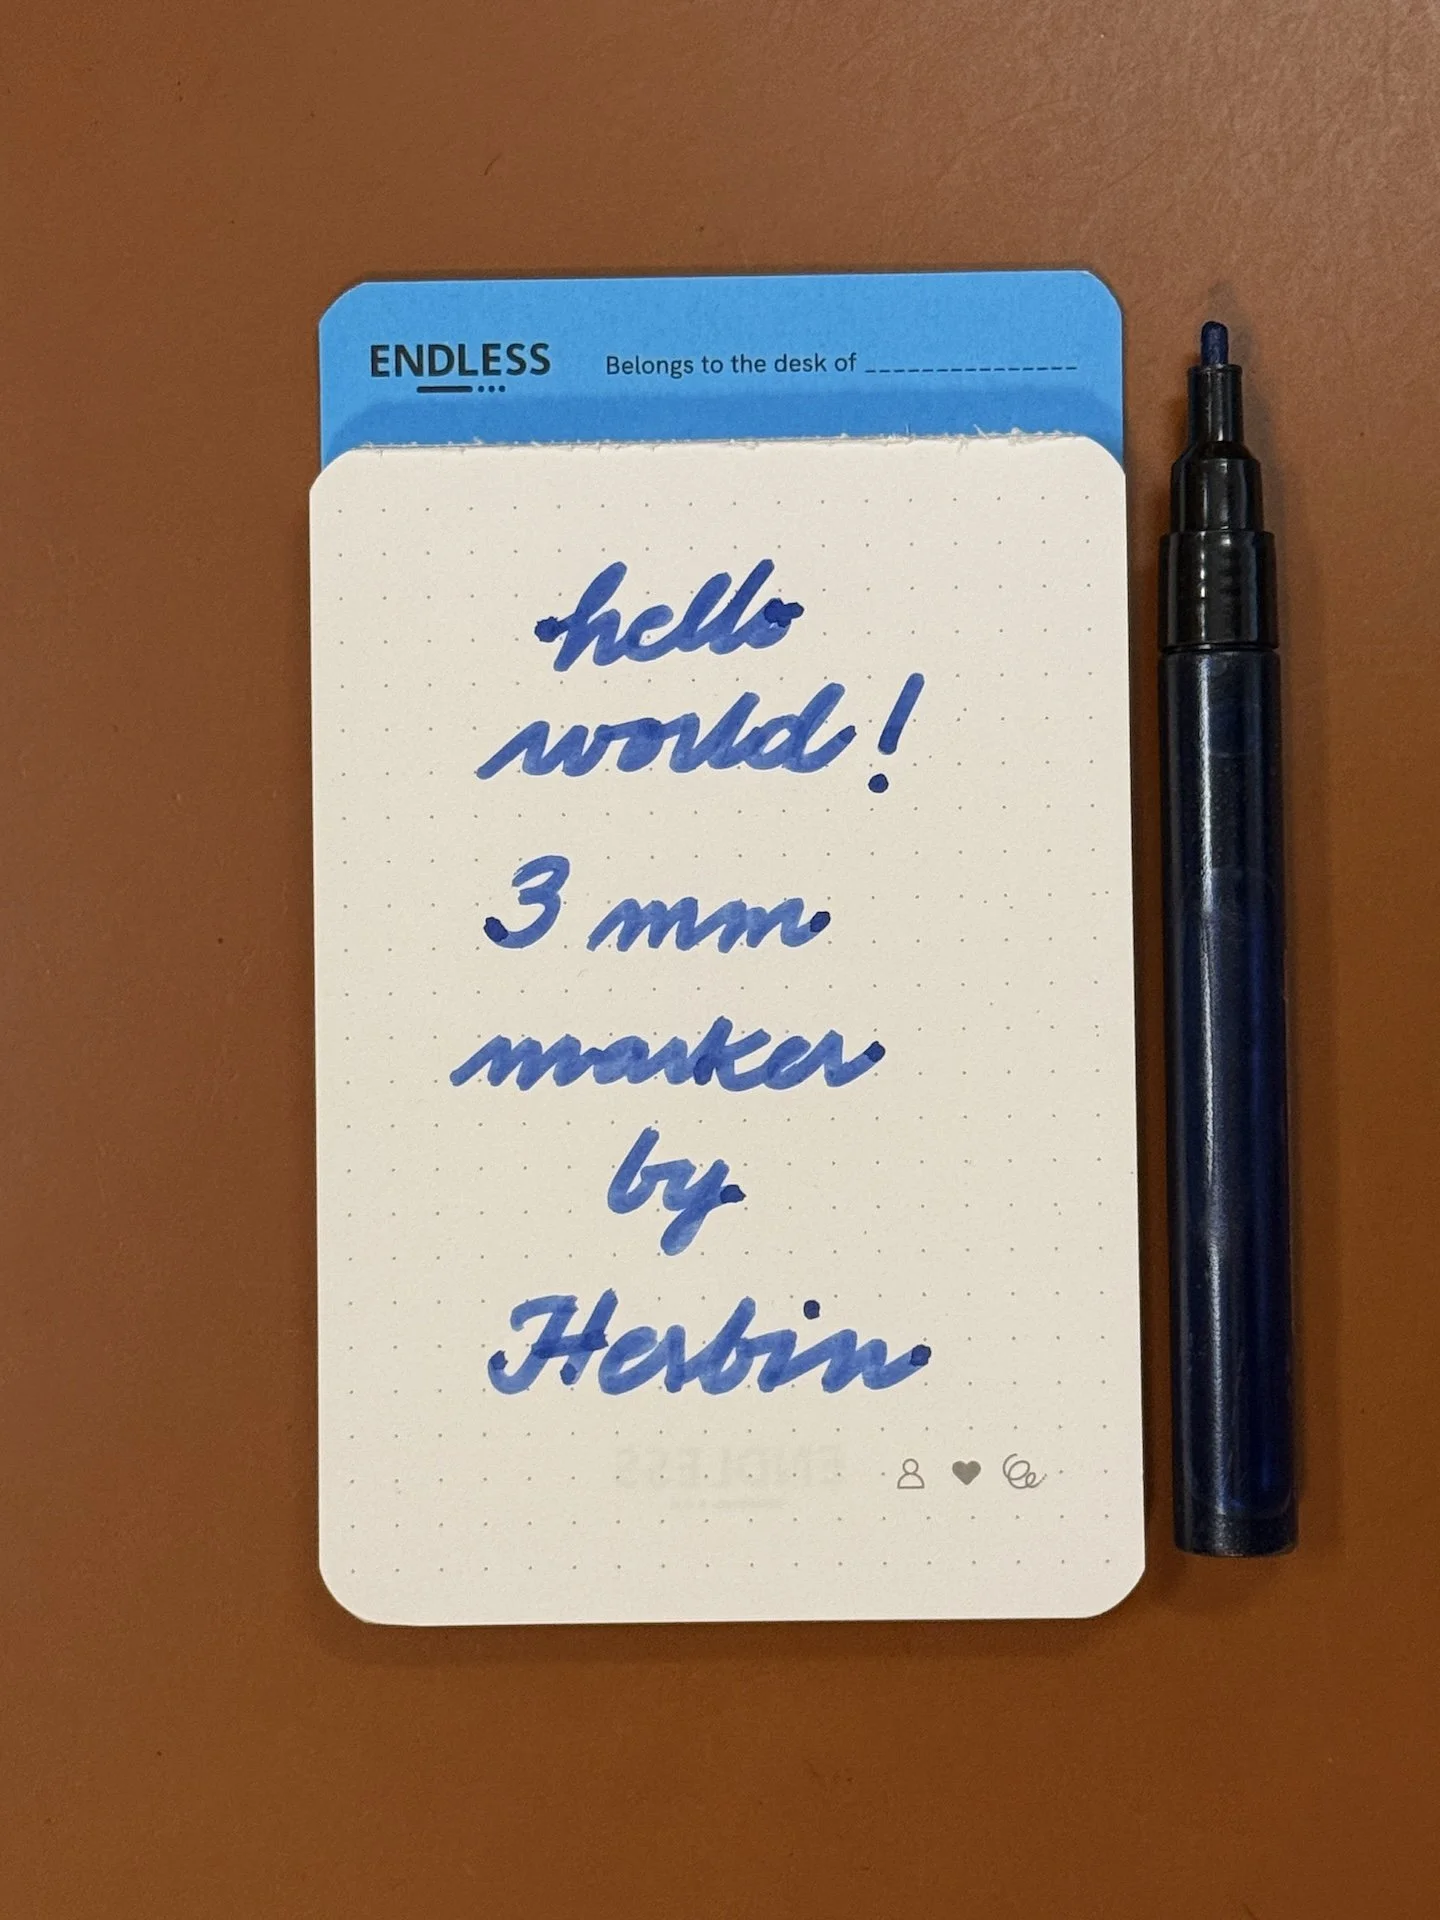 ENDLESS
Belongs to the desk of _______________
hello
world!
3 mm
marker
by
Herbin
ENDLESS